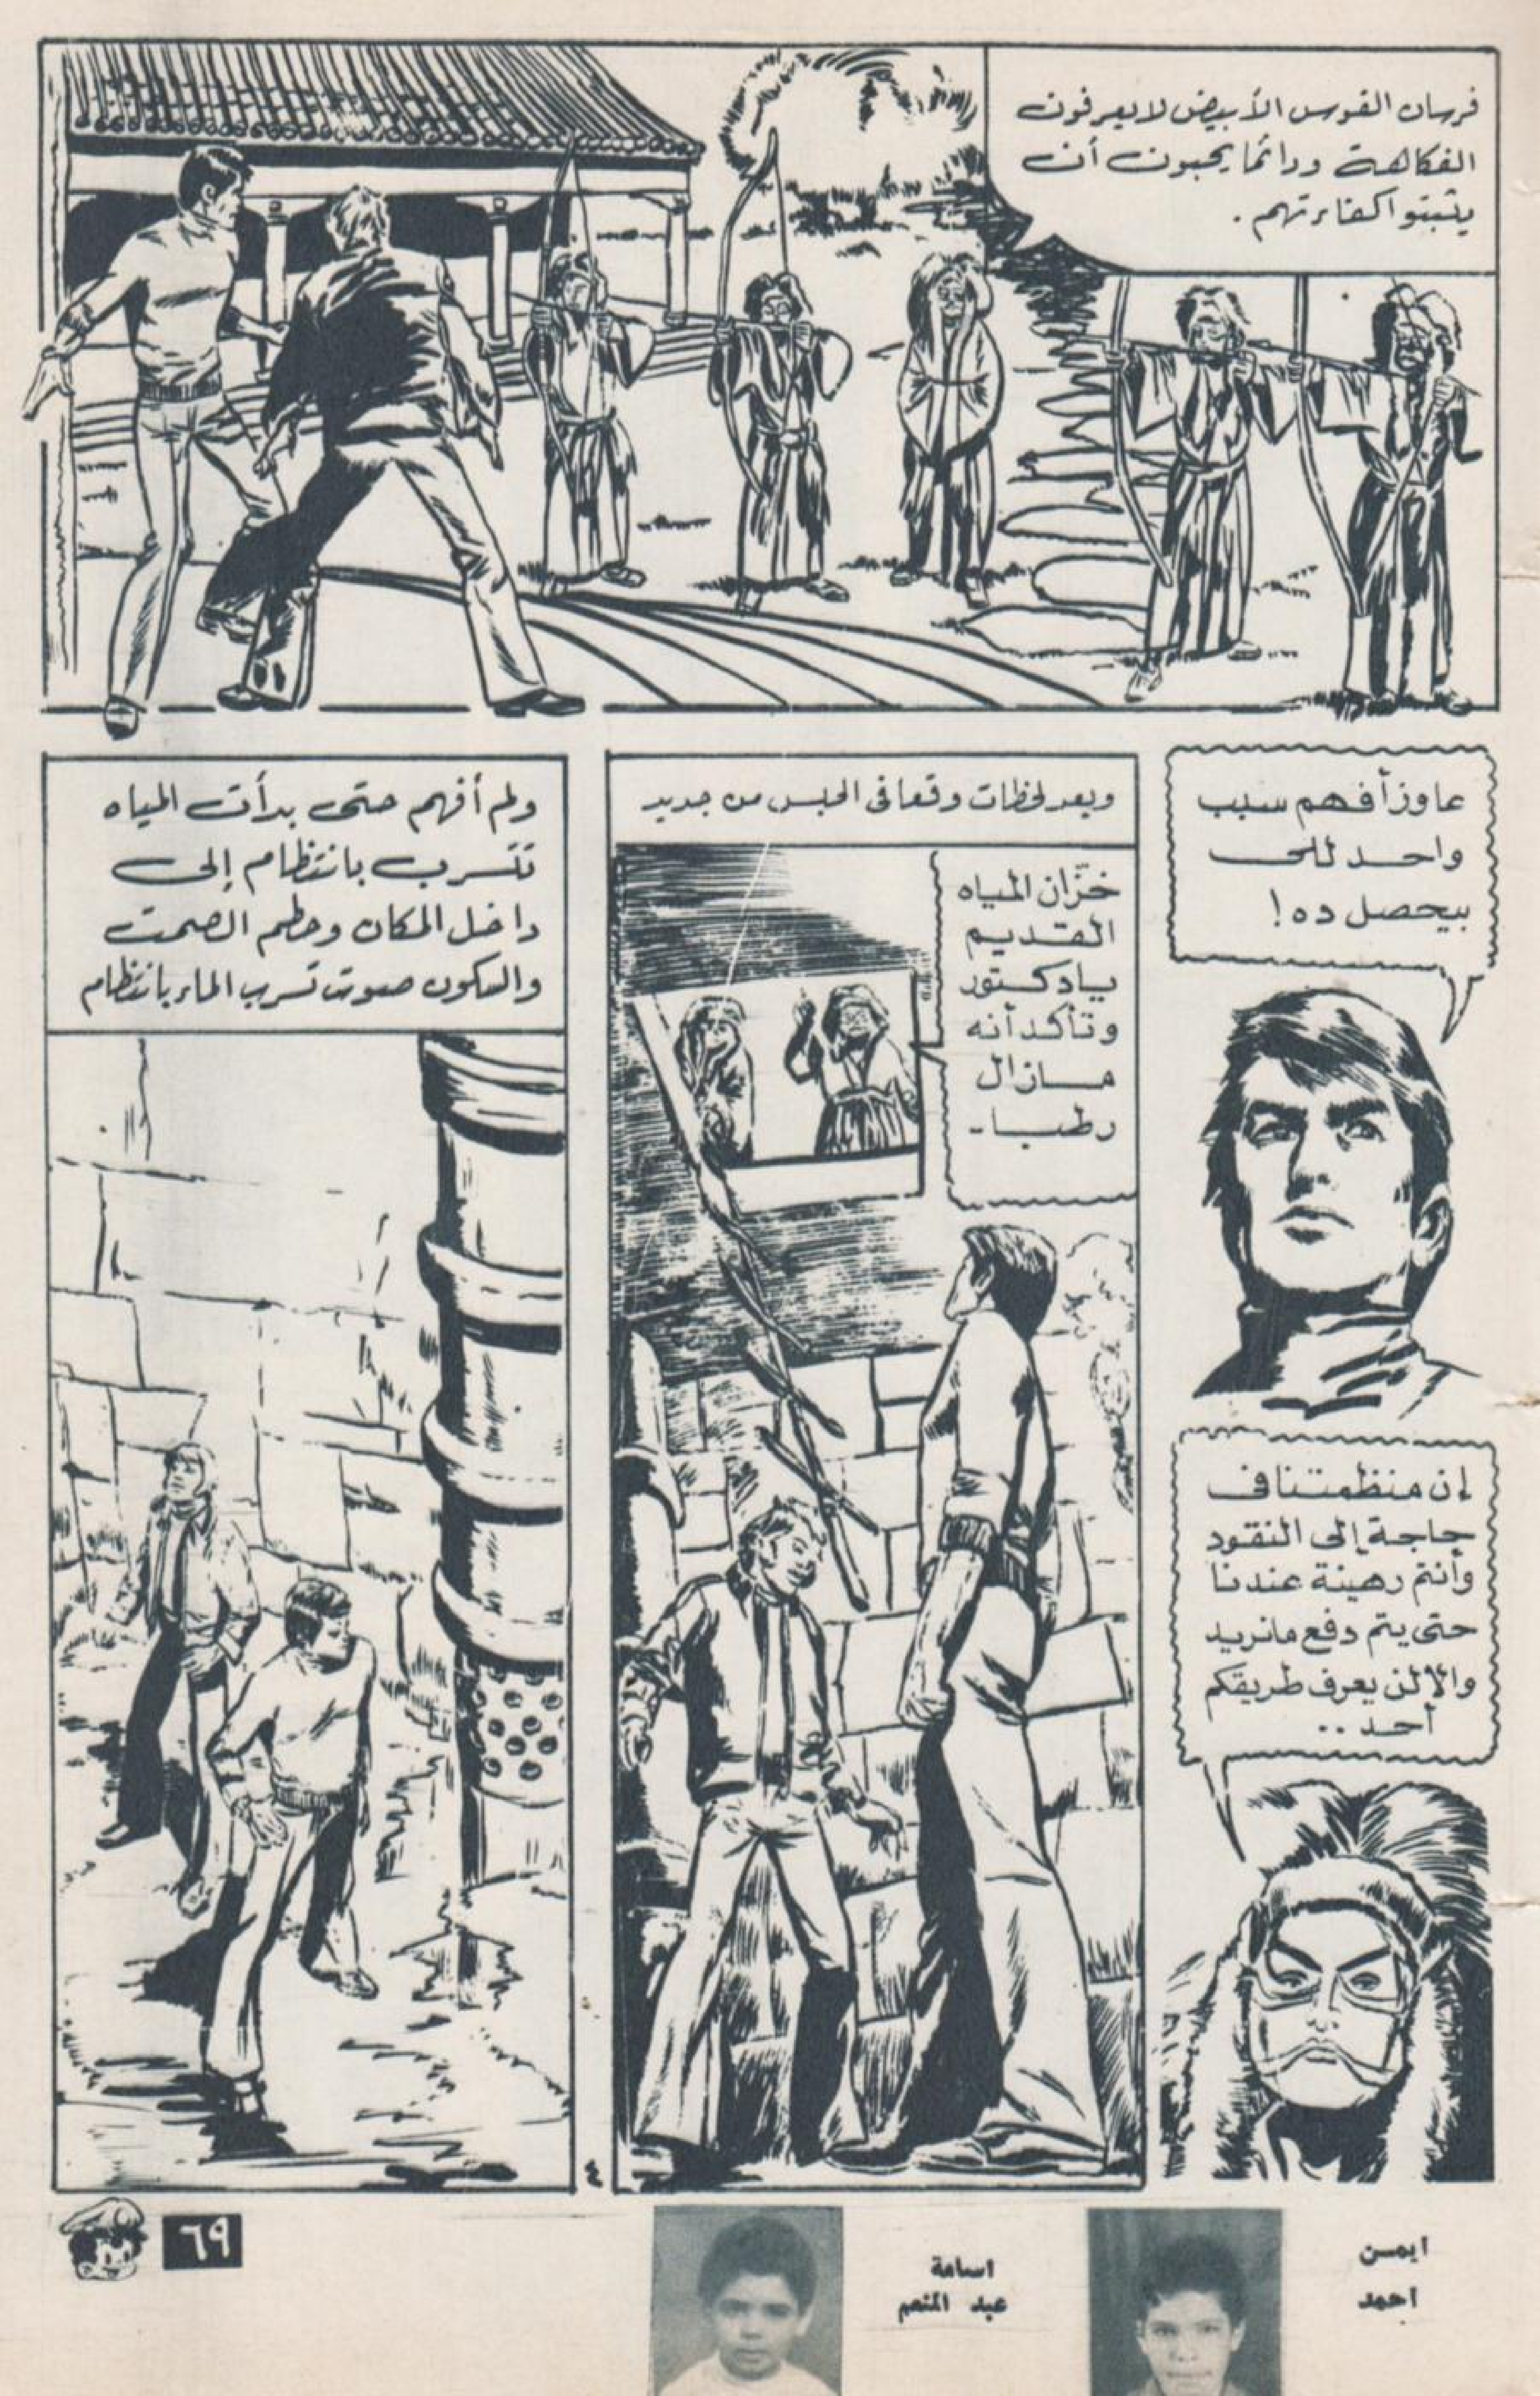 فرسان القوس الأبيض لا يعرفون
الفكاهة ودائما يحبون أن
يثبتوا كفاءتهم .
عاوز أفهم سبب
واحد للى
بيحصل ده !
إن منظمتنا فى
حاجة إلى النقود
وأنتم رهينة عندنا
حتى يتم دفع مانريد
والا لن يعرف طريقكم
أحد ..
وبعد لحظات وقعنا فى الحبس من جديد
خزّان المياه
القديم
يادكتور
وتأكد أنه
مازال
رطبا -
ولم أفهم حتى بدأت المياه
تتسرب بانتظام إلى
داخل المكان وحطم الصمت
والسكون صوت تسرب الماء بانتظام
ايمن
احمد
اسامة
عبد المنعم
٦٩